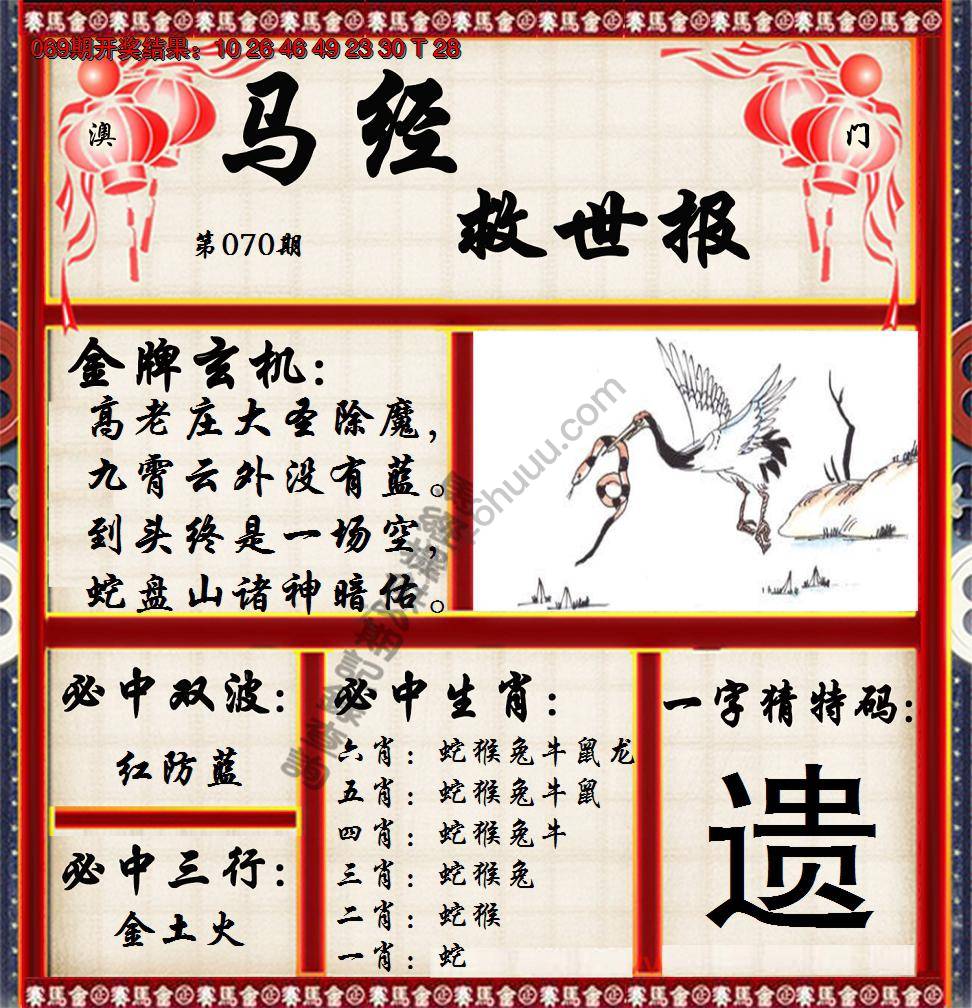 069期开奖结果：10 26 46 49 23 30 T 28
澳
门
马经
救世报
第070期
金牌玄机：
高老庄大圣除魔，
九霄云外没有蓝。
到头终是一场空，
蛇盘山诸神暗佑。
必中双波：
红防蓝
必中三行：
金土火
必中生肖：
六肖：蛇猴兔牛鼠龙
五肖：蛇猴兔牛鼠
四肖：蛇猴兔牛
三肖：蛇猴兔
二肖：蛇猴
一肖：蛇
一字猜特码：
遗